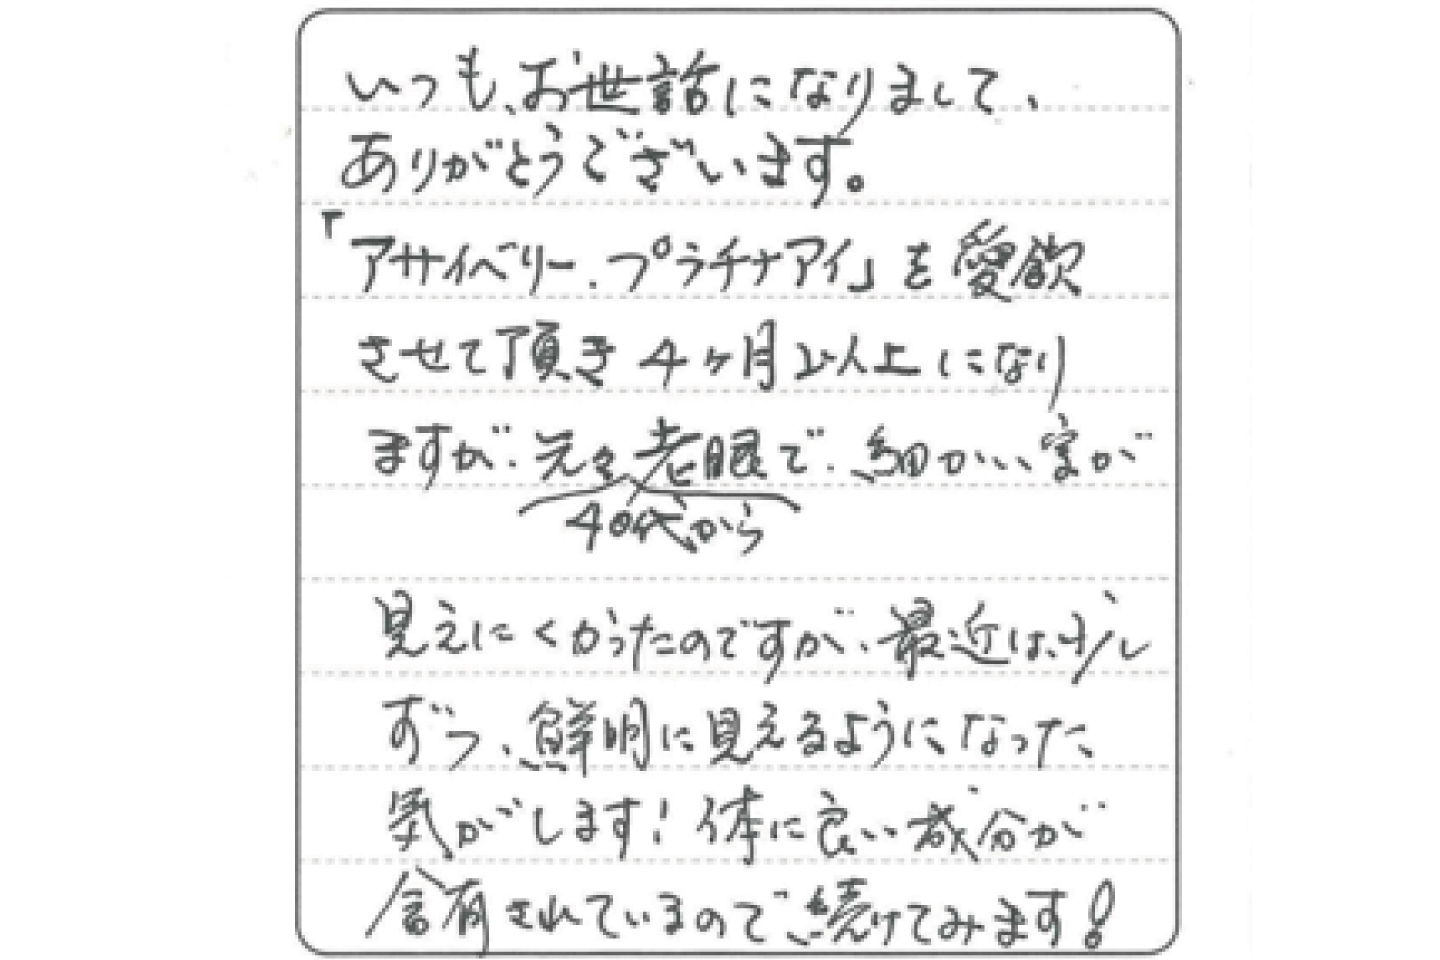 いつも、お世話になりまして、
ありがとうございます。
「アサイベリー.プラチナアイ」を愛飲
させて頂き4ヶ月以上になり
ますが、元々老眼で、細かい字が
40代から
見えにくかったのですが、最近は、少し
ずつ、鮮明に見えるようになった
気がします!体に良い成分が
含有されているので続けてみます!